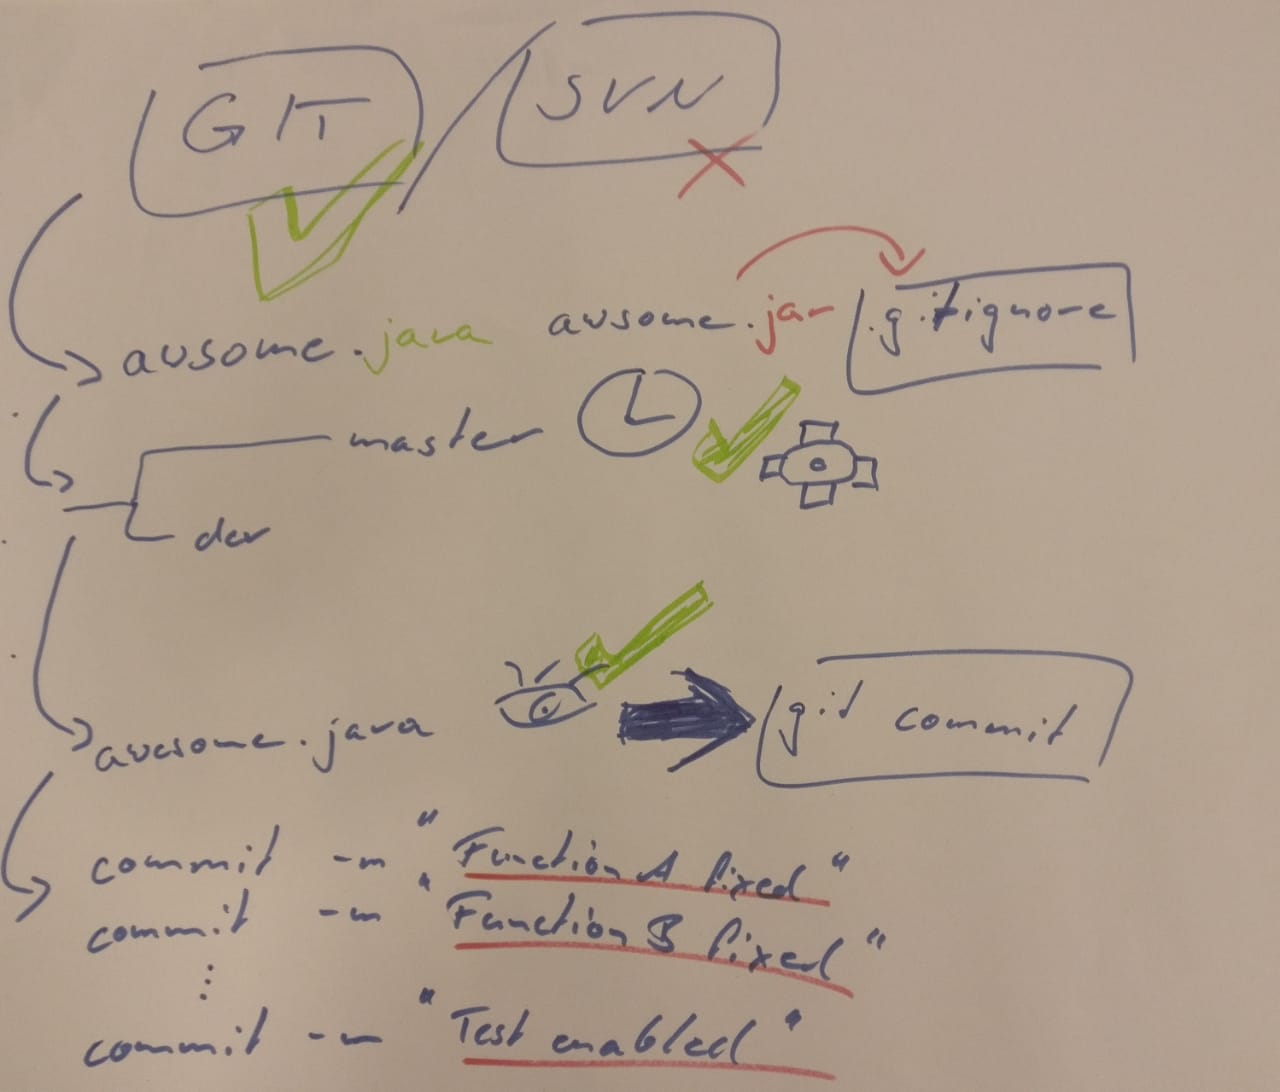 GIT / SVN
ausome.java ausome.jar .gitignore
master
dev
awesome.java git commit
commit -m "Function A fixed"
commit -m "Function B fixed"
⋮
commit -m "Test enabled"